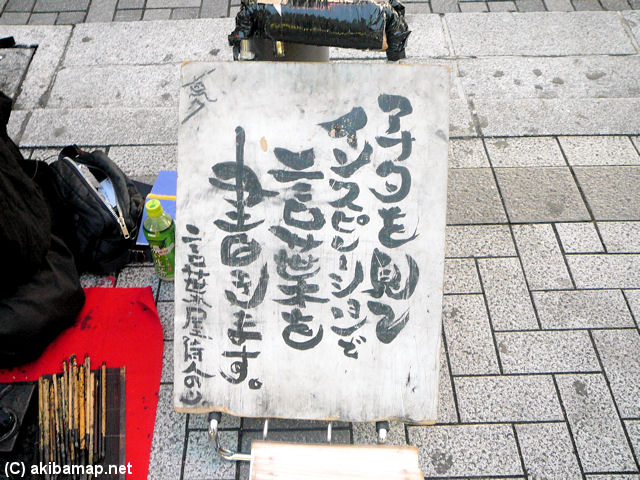 アナタを見て
インスピレーションで
言葉を
書きます。
言葉屋
(C) akibamap.net